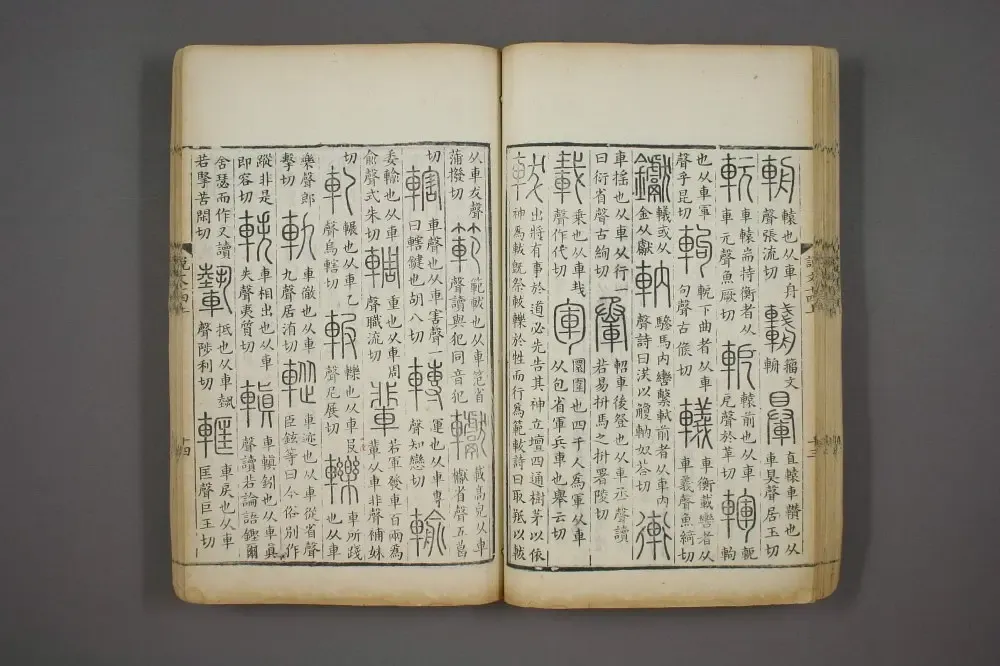 輈轅也从車舟聲張流切𨏺籒文輈𨋰直轅車𨏔也从車具聲居玉切
軏車轅耑持衡者从車元聲魚厥切軶轅前也从車戹聲於革切𨍏軶軥
也从車軍聲乎昆切軥軶下曲者从車句聲古候切轙車衡載轡者从車義聲魚綺切
钀轙或从金从獻軜驂馬内轡繫軾前者从車内聲詩曰漢以觼軜奴荅切衝
車搖也从車从行一曰衍省聲古絢切𨋬軺車後登也从車丞聲讀若易拼馬之拼署陵切
載乘也从車𢦏聲作代切軍圜圍也四千人爲軍从車从包省軍兵車也舉云切
軷出將有事於道必先告其神立壇四通樹茅以依神爲軷既祭軷轢於牲而行爲範軷詩曰取羝以軷
从車犮聲蒲撥切範範軷也从車笵省聲讀與犯同音犯載高皃从車㯻省聲五曷
切轄車聲也从車害聲一曰轄鍵也胡八切轉運也从車專聲知戀切輸
委輸也从車俞聲式朱切輖重也从車周聲職流切輩若軍發車百兩爲輩从車非聲補妹
切軋輾也从車乙聲烏轄切𨊽轢也从車㞋聲尼展切轢車所踐也从車
樂聲郎擊切軌車徹也从車九聲居洧切䡮車迹也从車從省聲臣鉉等曰今俗別作
蹤非是即容切軼車相出也从車失聲夷質切䡩車䡩釳也从車真聲讀若論語鏗爾
舍瑟而作又讀若掔苦閑切𨌰抵也从車埶聲陟利切軭車戾也从車匡聲巨王切